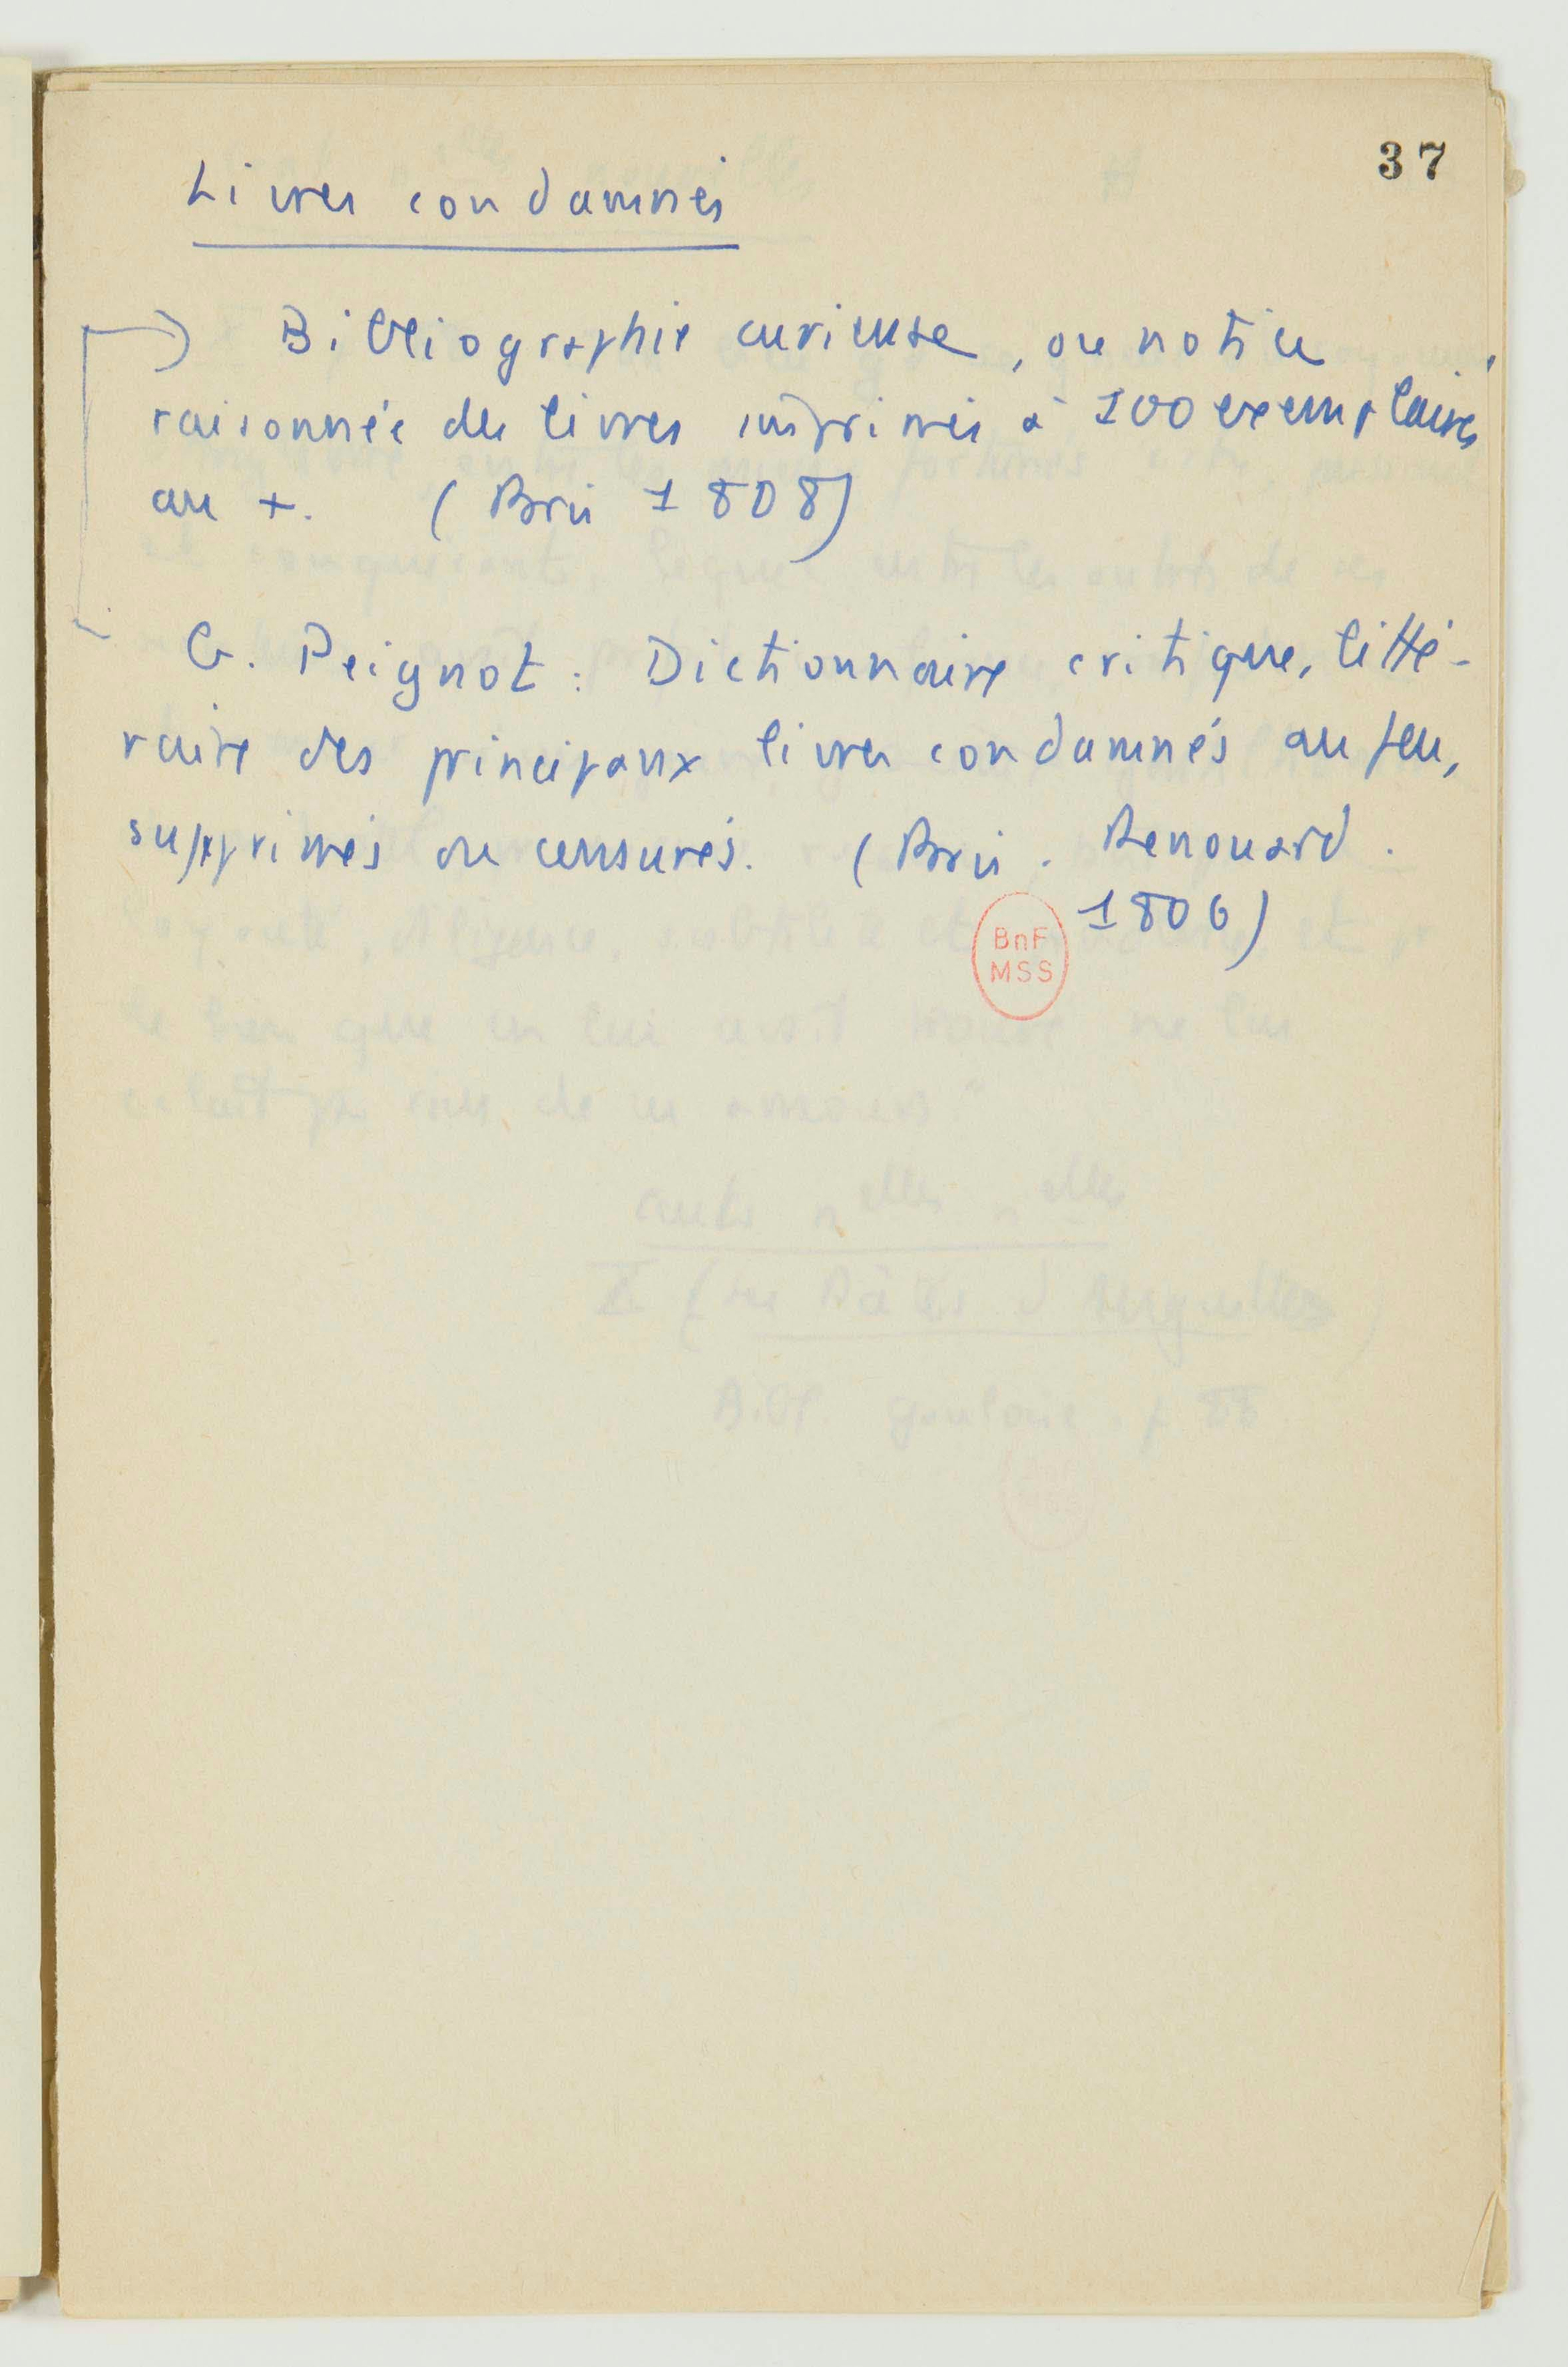 37
Livres condamnés
Bibliographie curieuse, ou notice
raisonnée des livres imprimés à 100 exemplaires
au +. (Paris 1808)
G. Peignot : Dictionnaire critique, litté-
raire des principaux livres condamnés au feu,
supprimés ou censurés. (Paris. Renouard.
1806)
BnF
MSS